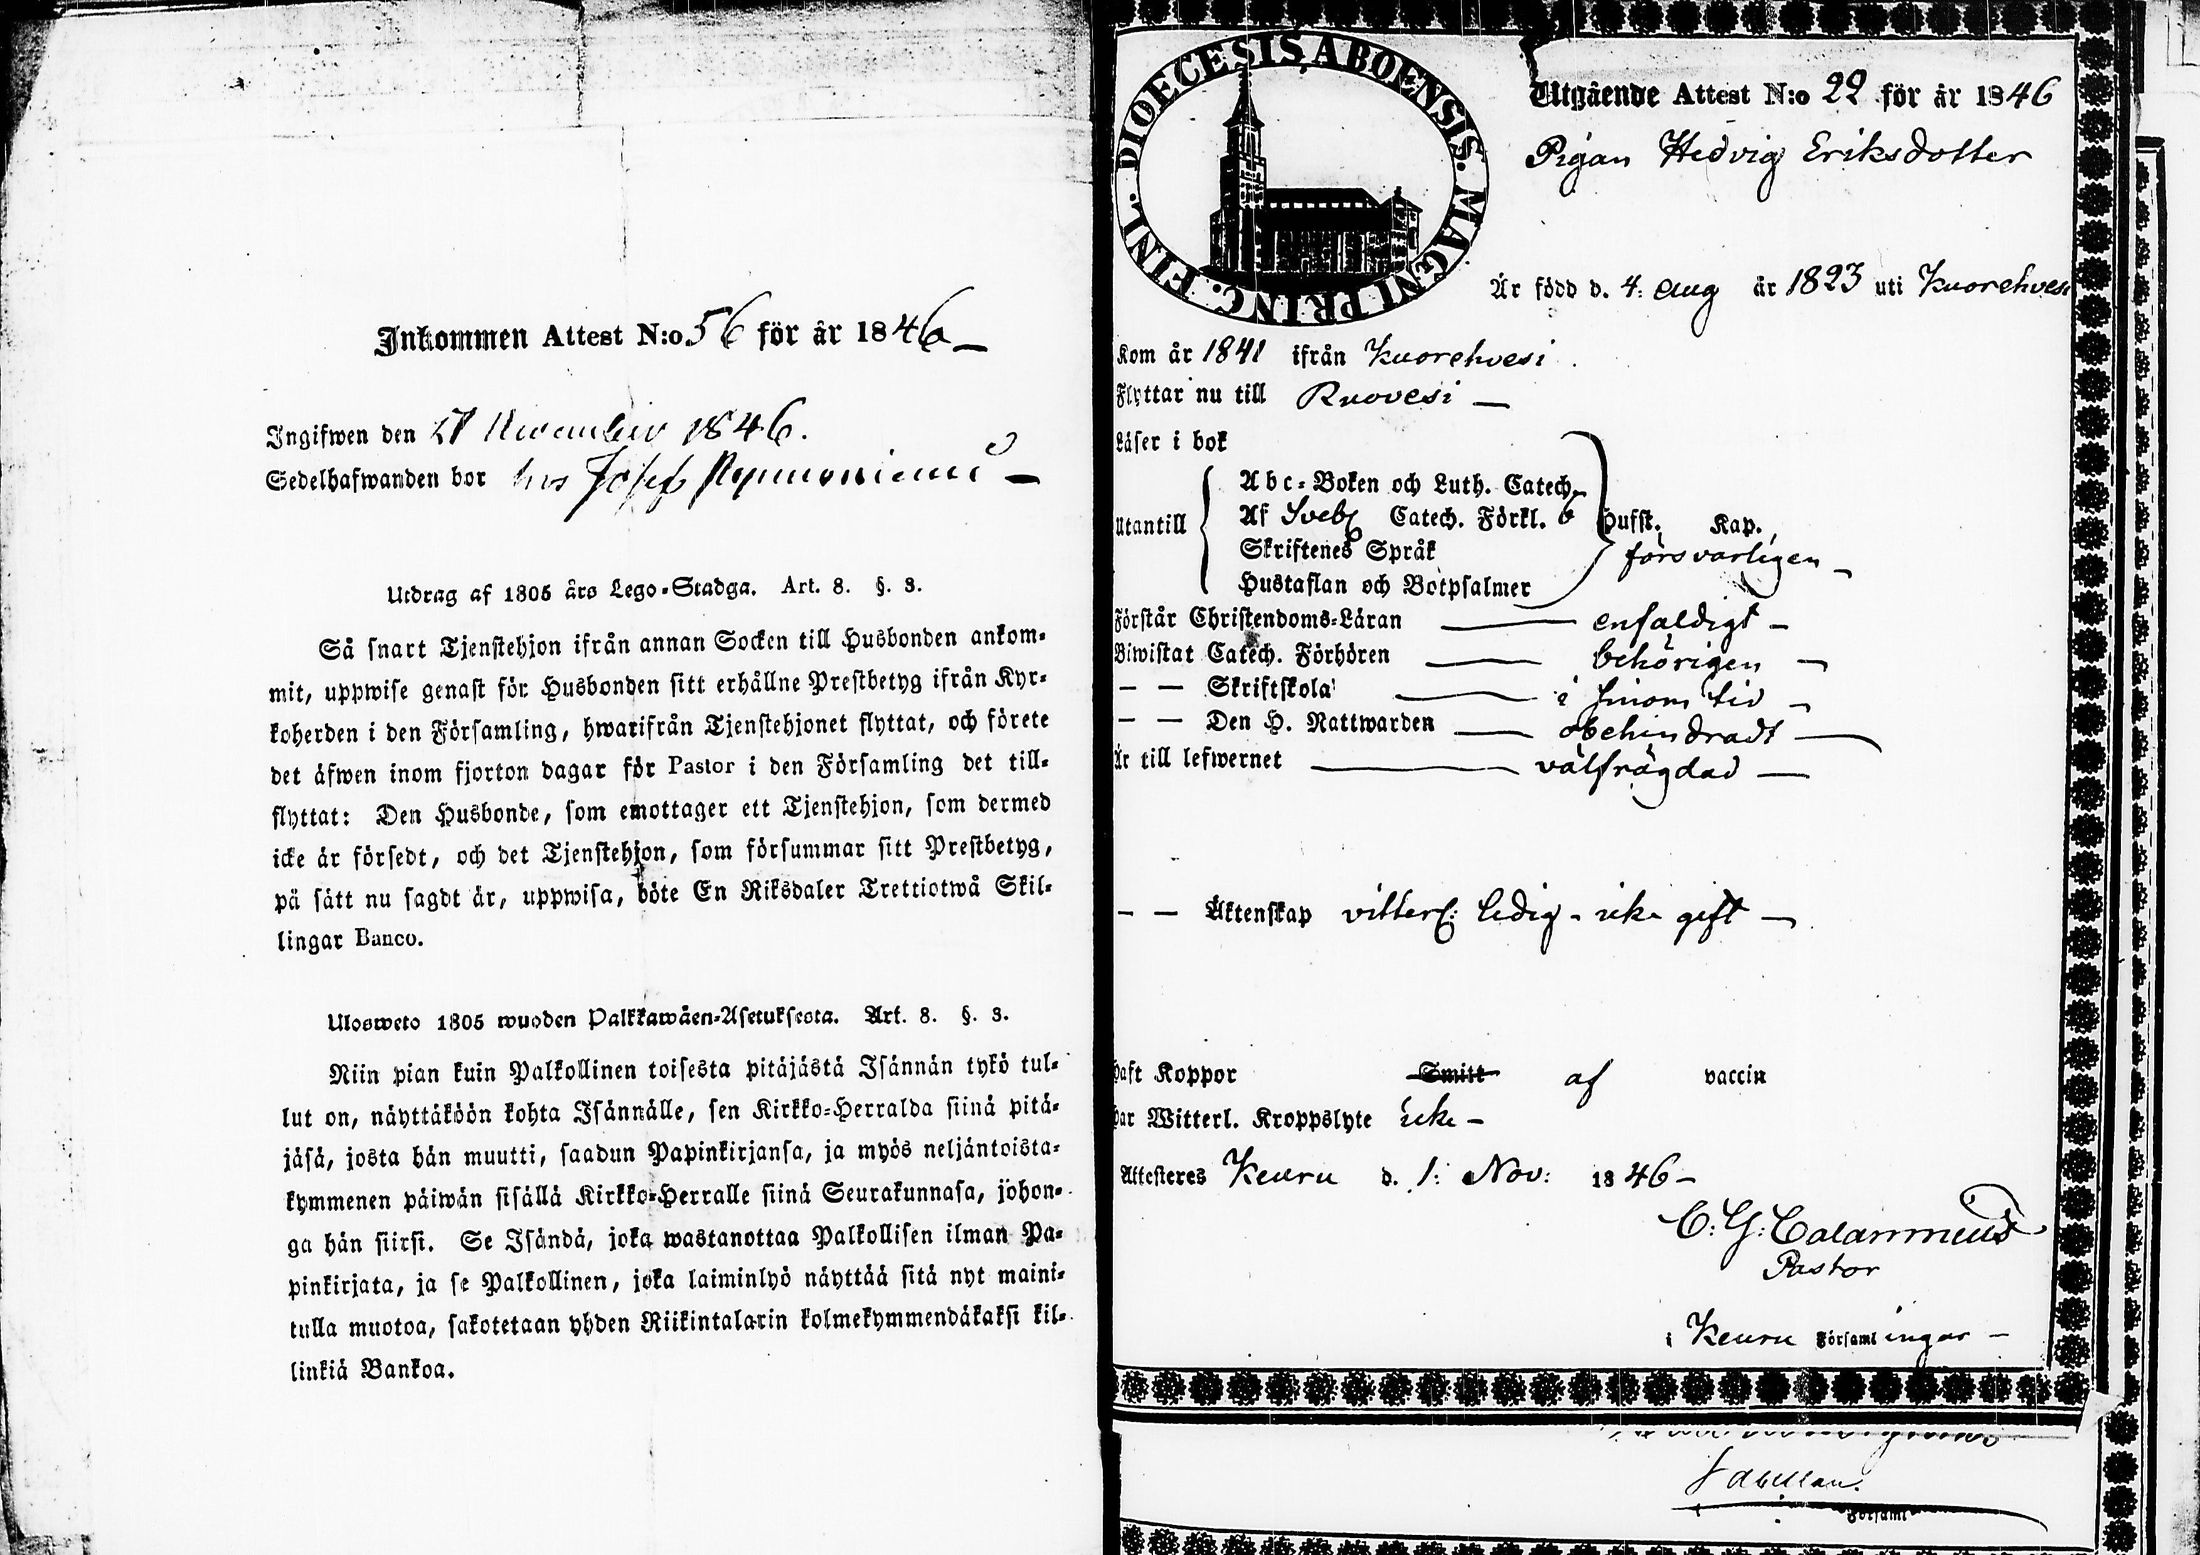 Inkommen Attest N:o 56 för år 1846
Ingifwen den November 1846.
Sedelhafwanden bor hos Josef
Utdrag af 1805 års Lego-Stadga. Art. 8. §. 3.
Så snart Tjenstehjon ifrån annan Socken till Husbonden ankom-
mit, uppwise genast för Husbonden sitt erhållne Prestbetyg ifrån Kyr-
koherden i den Församling, hwarifrån Tjenstehjonet flyttat, och förete
det äfwen inom fjorton dagar för Pastor i den Församling det till-
flyttat: Den Husbonde, som emottager ett Tjenstehjon, som dermed
icke är försedt, och det Tjenstehjon, som försummar sitt Prestbetyg,
på sätt nu sagdt är, uppwisa, böte En Riksdaler Trettiotwå Skil-
lingar Banco.
Ulosweto 1805 wuoden Palkkawäen-Asetuksesta. Art. 8. §. 3.
Niin pian kuin Palkollinen toisesta pitäjästä Isännän tykö tul-
lut on, näyttäköön kohta Isännälle, sen Kirkko-Herralda siinä pitä-
jäsä, josta hän muutti, saadun Papinkirjansa, ja myös neljäntoista-
kymmenen päiwän sisällä Kirkko-Herralle siinä Seurakunnasa, johon-
ga hän siirsi. Se Isändä, joka wastanottaa Palkollisen ilman Pa-
pinkirjata, ja se Palkollinen, joka laiminlyö näyttää sitä nyt maini-
tulla muotoa, sakotetaan yhden Riikintalarin kolmekymmendäkaksi kil-
linkiä Bankoa.
DIOECESIS ABOENSIS. MAGNI PRINC. FINL.
Utgående Attest N:o 22 för år 1846
Pigan Hedvig Eriksdotter
Är född d. 4: Aug år 1823 uti Kuorehvesi
Kom år 1841 ifrån Kuorehvesi
Flyttar nu till Ruovesi
Läser i bok
Utantill
Abc-Boken och Luth. Catech.
Af Sveb Catech. Förkl. 6 Hufst. Kap.
Skriftenes Språk
försvarligen
Hustaflan och Botpsalmer
Förstår Christendoms-Läran enfaldigt
Biwistat Catech. Förhören behörigen
— — Skriftskola i sinom tid
— — Den H. Nattwarden obehindradt
Är till lefwernet välfrägdad
— — Äktenskap vitterl: ledig - icke gift
Haft Koppor Smitt af vaccin
Har Witterl. Kroppslyte icke
Attesteres Keuru d. 1: Nov: 1846
C: G: Calamnius
Pastor
i Keuru Församlingar
Församl